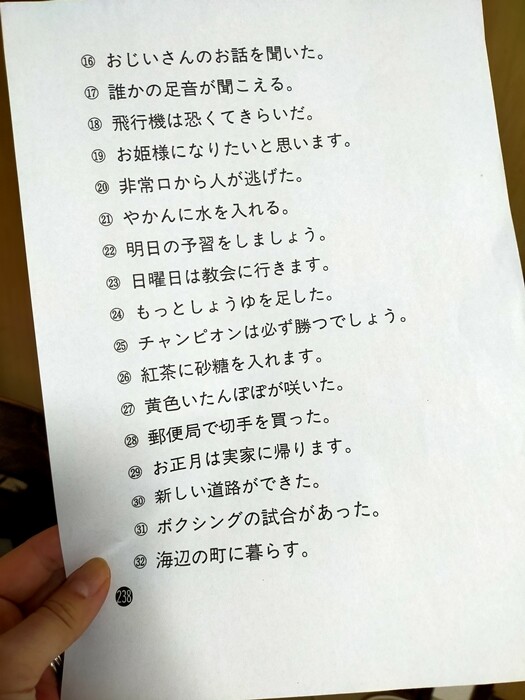 ⑯ おじいさんのお話を聞いた。
⑰ 誰かの足音が聞こえる。
⑱ 飛行機は恐くてきらいだ。
⑲ お姫様になりたいと思います。
⑳ 非常口から人が逃げた。
㉑ やかんに水を入れる。
㉒ 明日の予習をしましょう。
㉓ 日曜日は教会に行きます。
㉔ もっとしょうゆを足した。
㉕ チャンピオンは必ず勝つでしょう。
㉖ 紅茶に砂糖を入れます。
㉗ 黄色いたんぽぽが咲いた。
㉘ 郵便局で切手を買った。
㉙ お正月は実家に帰ります。
㉚ 新しい道路ができた。
㉛ ボクシングの試合があった。
㉜ 海辺の町に暮らす。
238